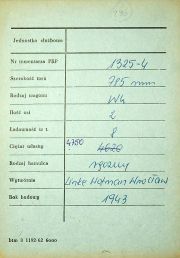 Jednostka służbowa
Nr inwentarza PKP 1325-4
Szerokość toru 785 mm
Rodzaj wagonu Wh
Ilość osi 2
Ładowność w t. 8
Ciężar własny 4750 4620
Rodzaj hamulca ręczny
Wytwórnia Linke Hofman Wrocław
Rok budowy 1943